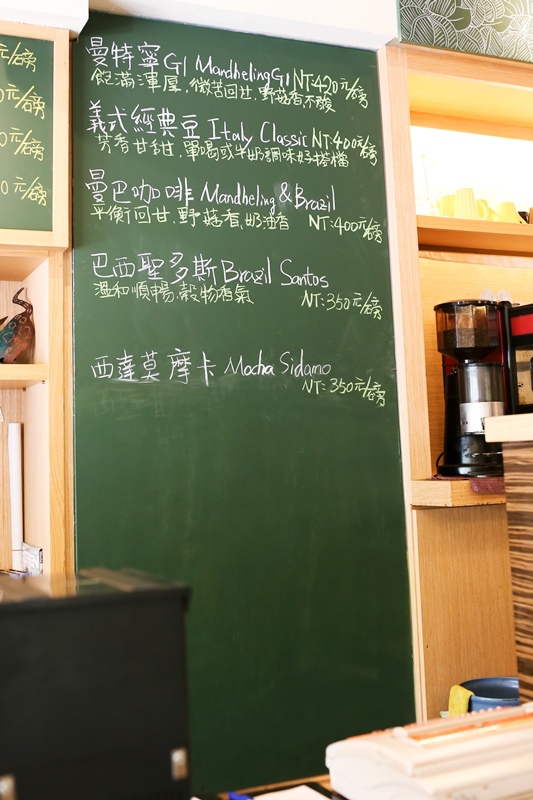 元/磅
0元/磅
0元/磅
0元/磅
曼特寧G1 MandhelingG1 NT:420元/磅
飽滿渾厚,微苦回甘,野菇香不酸
義式經典豆 Italy Classic NT:400元/磅
芳香甘甜,單喝或牛奶調味好搭檔
曼巴咖啡 Mandheling & Brazil
平衡回甘,野菇香,奶油香 NT:400元/磅
巴西聖多斯 Brazil Santos
溫和順暢,穀物香氣 NT:350元/磅
西達莫摩卡 Mocha Sidamo
NT:350元/磅